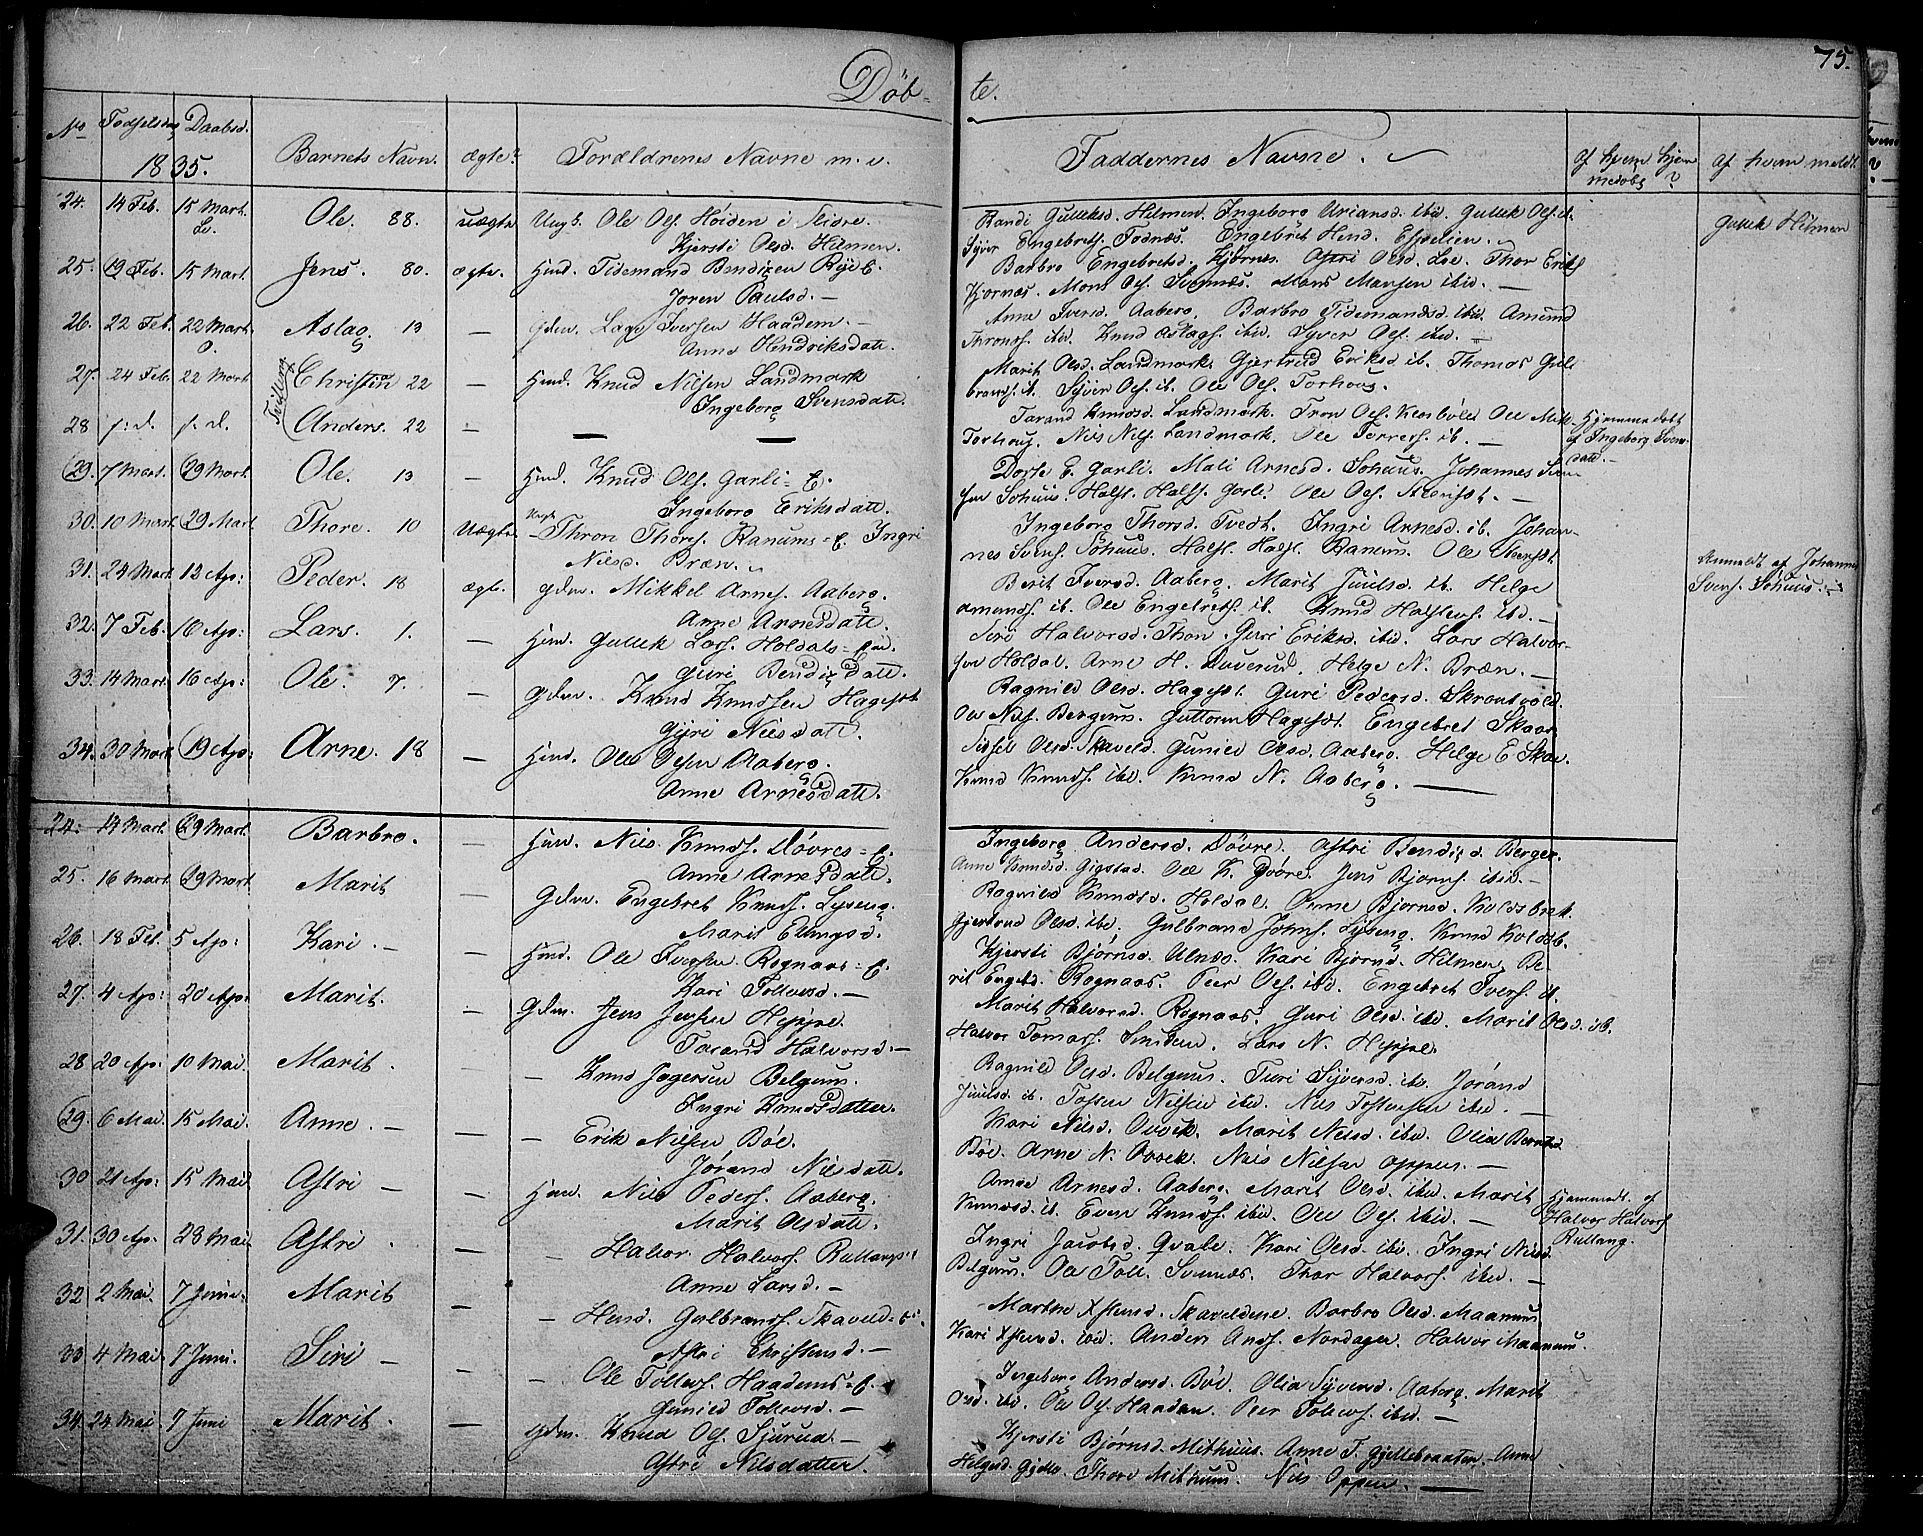 75.
Döb-
te.
No Fødselsdag Daabsd. Barnets Navn. ægte? Forældrenes Navne m. v.
1835.
Faddernes Navne. Af hvem hjem
medøbt? Af hvem meldt
24. 14 Feb. 15 Mart. Ole. 88. uægte Ungk. Ole Ols. Höiden i Slidre.
Kjersti Olsd. Hilmen.
Randi Gulleksd. Hilmen. Ingeborg Ariansd. ibid. Gullek Ols. ib.
Syver Engebrets. Fodnæs. Engebret Hend. Espelien.
Gullek Hilmen
25. 19 Feb. 15 Mart. Jens. 80. ægte. Huusd. Tidemand Bendixen Rye E.
Joren Paulsd. —
Barbro Engebretsd. Kjörnes. Astri Olsd. Lie. Thor Eriks
Kjornæs. Mons Ols. Svennæs. Mons Monsen ibid. —
26. 22 Feb. 22 Mart. Aslag. 13 — Gdm. Lage Iversen Haadem. —
Anna Hendriksdatt.
Anne Iversd. Aaberg. Barbro Tidemandsd. ibid. Amund
Throns. ibid. Knud Aslags. ibid. Syver Ols. ibid. —
27. 24 Feb. 22 Mart. Tvilling Christen 22 — Huusd. Knud Nilsen Landmark
Ingeborg Svensdatt.
Marit Olsd. Landmark. Gjertrud Eriksd. ib. Thomas Gul
brands. ib. Syver Ols. ib. Ole Ols. Torhous.
28 s. d. s. d. Anders. 22 — — —
Tarand Knudsd. Landmark. Tron Ols.
Torhoug. Nils Nils. Landmark. Ole Torers. ib. —
Hjemmedøbt
af Ingeborg Svens-
datt. —
29. 7 Mart. 29 Mart. Ole. 13 — Huusd. Knud Ols. Garli = E.
Ingeborg Eriksdatt.
Dorte E. Garli. Mali Arnesd. Sohuus. Johannes Sven
sen Sohuus. Halst. Hals. Garli. Ole Ols.
30. 10 Mart. 29 Mart. Thore. 10 Uægte Ungk. Thron Thors. Ranums = E. Ingri
Nilsd. Bræn.
Ingeborg Thorsd. Tvedt. Ingri Arnesd. ib. Johan-
nes Svens. Sohuus. Halst. Halst. Ranum. Ole
Anmeldt af Johannes
Svens. Sohuus.
31. 24 Mart. 12 Apr: Peder. 18 ægte. Gdm. Mikkel Arnes. Aaberg.
Anne Arnesdatt.
Berit Iversd. Aaberg. Marit Juulsd. ib. Helge
Amunds. ib. Ole Engebrets. ib. Knud Halstens. ibid. —
32. 7 Feb. 16 Apr: Lars. 1. — Huusd. Gullek Lars. Holdals = E.
Guri Bendixdatt.
Siri Halvorsd. Thon. Guri Eriksd. ibid. Lars Halvor-
sen Holdal. Arne H. Duverud. Helge N. Bræn. —
33. 14 Mart. 16 Apr: Ole. 7. — Gdm. Knud Knudsen Hagest.
Gjøri Nilsdatt.
Ragnild Olsd. Hagest. Guri Pedersd. Skroutvold.
Ole Nils. Bergum. Guttorm Hagest. Engebret Skaar
34. 30 Mart. 19 Apr: Arne. 18 — Huusd. Ole Olsen Aaberg.
Anne Arnesdatt.
Sidsel Olsd. Skaveld. Gunild Olsd. Aaberg. Helge E. Skav.
Knud Knuds. ibid. Knud N. Aaberg. —
24. 14 Mart. 29 Mart. Barbro. — Huusd. Nils Knuds. Dövres = E.
Anne Arnesdatt.
Ingeborg Andersd. Dövre. Astri Bendixd. Berger.
Anne Knudsd. Gigstad. Ole K. Dövre. Jens Bjorns. ibid. —
25. 16 Mart. 29 Mart. Marit — Gdm. Engebret Knuds. Lyseng.
Marit Ellingsd.
Ragnild Knudsd. Holdal. Anne Bjornsd. Koldsbrek.
Gjertrud Olsd. ibid. Gulbrand Johns. Lyseng. Knud Koldsb.
26. 18 Feb. 5 Apr: Kari. — — Huusd. Ole Iversen Rognaas = E.
Kari Tollevsd. —
Kjersti Björnsd. Ulnæs. Kari Bjornd. Hilmen. Be-
rit Engebd. Rognaas. Peer Ols. ibid. Engebret Ivers. ib.
27. 4 Apr: 20 Apr: Marit. — Gdm. Jens Jensen Heppe.
Tarand Halvorsd. —
Marit Halvorsd. Rognaas. Guri Olsd. ibid. Marit Olsd. ib.
Halvor Tomas. Smeden. Lars N. Heppe.
28 20 Apr: 10 Mai. Marit. — — Knud Jogersen Belgum.
Ingri Knudsdatter.
Ragnild Olsd. Belgum. Turi Syversd. ibid. Jorand
Juulsd. ib. Tosten Nilsen ibid. Nils Tostensen ibid. —
29. 6 Mai. 15 Mai. Anne. — — — Erik Nilsen Böe.
Jorand Nilsdatt.
Kari Nilsd. Qvvik. Marit Nilsd. ibid. Olia Berntsd.
Böe. Arne N. Nils Nilsen Oppen. —
30 21 Apr: 15 Mai. Astri — — Huusd. Nils Peders. Aaberg.
Marit Olsdatt.
Anne Arnesd. Aaberg. Marit Olsd. ibid. Marit
Knudsd. ib. Even Knuds. ibid. Ole Ols. ibid. —
Hjemmedt. af
Halvor Halvors
Rullang.
31. 30 Apr. 28 Mai. Astri. — — Halvor Halvors. Rullangs E
Anne Larsd. —
Ingri Jacobsd. Qvale. Kari Olsd. ibid. Ingri Nilsd.
Belgum. Ole Toll. Svennæs. Thor Halvors. ibid. —
32 2 Mai. 7 Juni. Marit — — Hend. Gulbrands. Skaveld = E.
Astri Christensd. —
Marthe Xstensd. Skaveldene. Barbro Olsd. Maanum
Kari Xstensd. ibid. Anders Ands. Nordager. Halvor Maanum.
33 4 Mai. 7 Juni. Siri — — — Ole Tollevs. Haadems = E.
Gunild Tollevsd. —
Ingeborg Andersd. Böe. Olia Syversd. Aaberg. Marit
Olsd. ibid. Ole Ols. Haadem. Peer Tollevs. ibid. —
34. 24 Mai 7 Juni Marit. — Gdm. Knud Ols. Sjurud. —
Astri Nilsdatter.
Kjersti Björnsd. Mithuus. Anne T. Gjellebraaten. Anne
Helgesd. Gjelle. Thore Mithuus. Nils Oppen. —